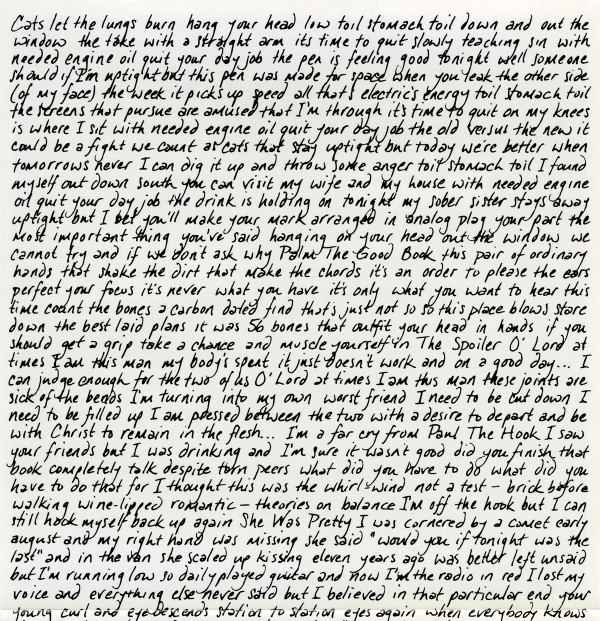 Cats let the lungs burn hang your head low toil stomach toil down and out the
window the take with a straight arm its time to quit slowly teaching sin with
needed engine oil quit your day job the pen is feeling good tonight well someone
should if I'm uptight but this pen was made for space when you leak the other side
(of my face) the week it picks up speed all that's electric's energy toil stomach toil
the screens that pursue are amused that I'm through it's time to quit on my knees
is where I sit with needed engine oil quit your day job the old versus the new it
could be a fight we count as cats that stay uptight but today we're better when
tomorrows never I can dig it up and throw some anger toil stomach toil I found
myself out down south you can visit my wife and my house with needed engine
oil quit your day job the drink is holding on tonight my sober sister stays away
uptight but I bet you'll make your mark arranged in analog play your part the
most important thing you've said hanging on your head out the window we
cannot try and if we don't ask why Palm The Good Book this pair of ordinary
hands that shake the dirt that make the chords it's an order to please the ears
perfect your focus it's never what you have it's only what you want to hear this
time count the bones a carbon dated find that's just not so so this place blows stare
down the best laid plans it was 56 bones that outfit your head in hands if you
should get a grip take a chance and muscle yourself in The Spoiler O' Lord at
times I am this man my body's spent it just doesn't work and on a good day... I
can judge enough for the two of us O' Lord at times I am this man these joints are
sick of the bends I'm turning into my own worst friend I need to be cut down I
need to be filled up I am pressed between the two with a desire to depart and be
with Christ to remain in the flesh... I'm a far cry from Paul The Hook I saw
your friends but I was drinking and I'm sure it wasn't good did you finish that
book completely talk despite torn peers what did you have to do what did you
have to do that for I thought this was the whirl-wind not a test - brick before
walking wine-lipped romantic - theories on balance I'm off the hook but I can
still hook myself back up again She Was Pretty I was cornered by a comet early
august and my right hand was missing she said "would you if tonight was the
last" and in the van she scaled up kissing eleven years ago was better left unsaid
but I'm running low so daily played guitar and now I'm the radio in red I lost my
voice and everything else never said but I believed in that particular end your
young curl and eye descends station to station eyes again when everybody knows